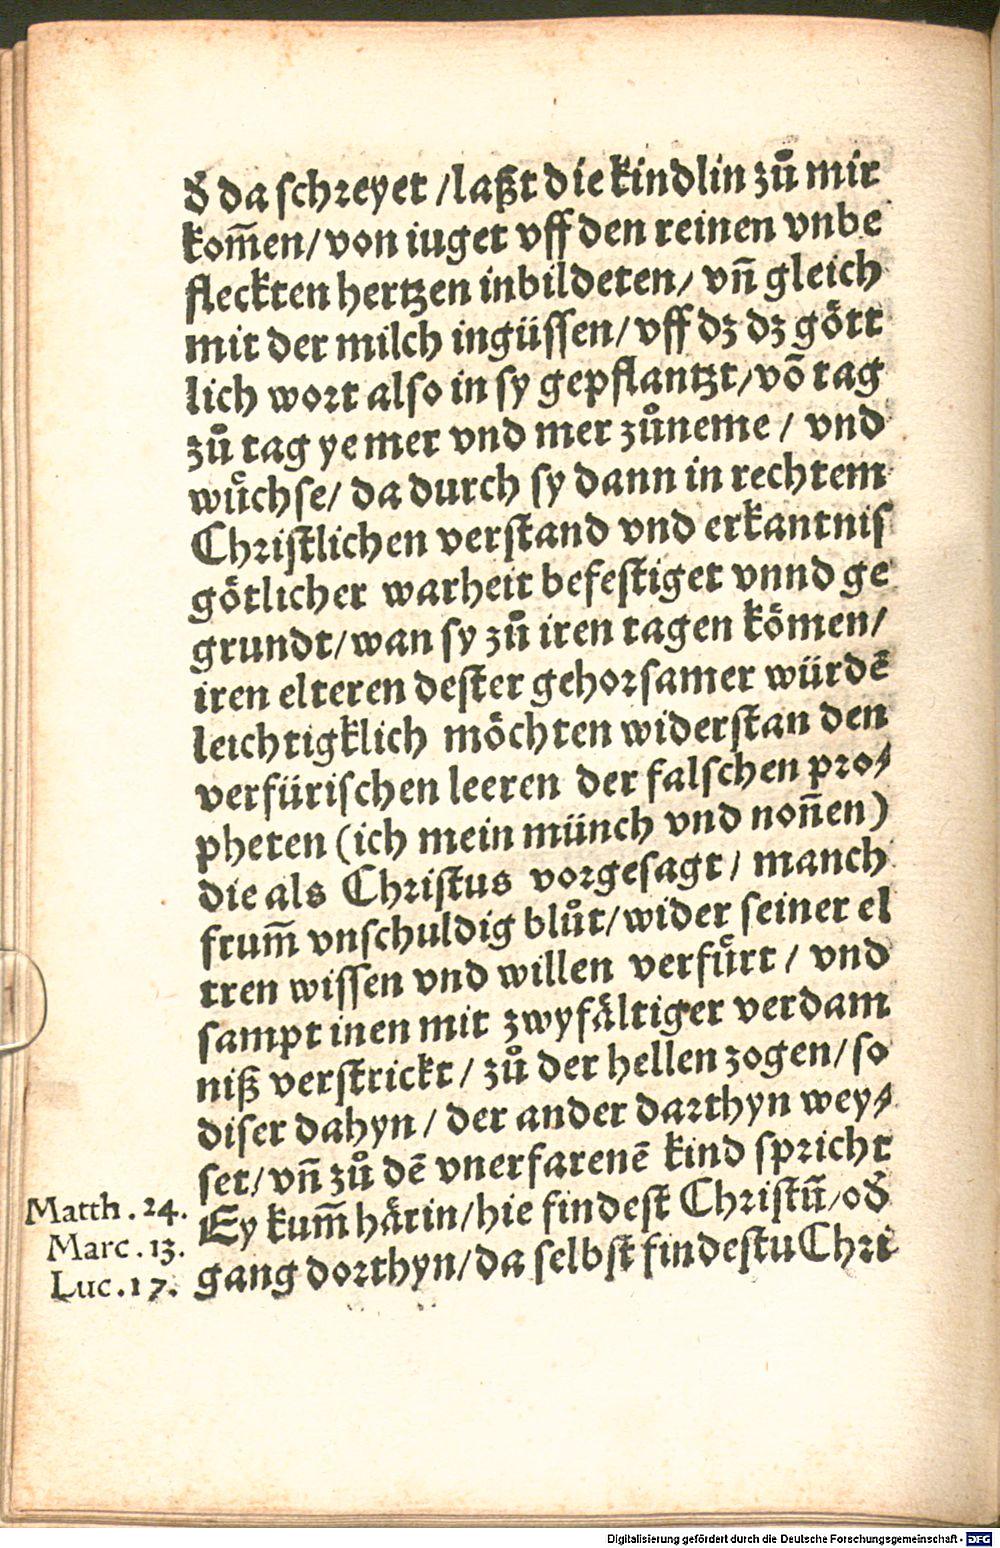 d̕ da schreyet / laßt die kindlin zů mir
kom̄en / von iuget vff den reinen vnbe
fleckten hertzen inbildeten / vn̄ gleich
mit der milch ingüssen / vff dz dz gött
lich wort also in sy gepflantzt / vō tag
zů tag ye mer vnd mer zůneme / vnd
wůchse / da durch sy dann in rechtem
Christlichen verstand vnd erkantnis
götlicher warheit befestiget vnnd ge
grundt / wan sy zů iren tagen kömen /
iren elteren dester gehorsamer würdē
leichtigklich möchten widerstan den
verfürischen leeren der falschen pro⸗
pheten (ich mein münch vnd non̄en)
die als Christus vorgesagt / manch
frum̄ vnschuldig blůt / wider seiner el
tren wissen vnd willen verfůrt / vnd
sampt inen mit zwyfältiger verdam
niß verstrickt / zů der hellen zogen / so
diser dahyn / der ander darthyn wey⸗
set / vn̄ zů dē vnerfarenē kind spricht
Matth. 24. Ey kum̄ härin / hie findest Christū / od̕
Marc. 13.
Luc. 17. gang dorthyn / da selbst findestu Chri
Digitalisierung gefördert durch die Deutsche Forschungsgemeinschaft - DFG